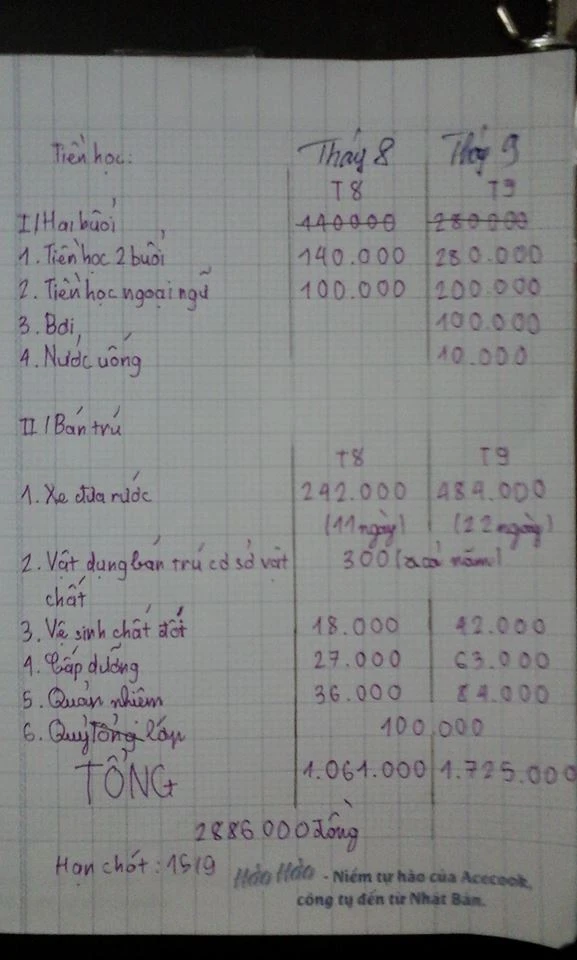 Tiền học: Tháng 8 Tháng 9
T8 T9
I/ Hai buổi 140000 280000
1. Tiền học 2 buổi 140.000 280.000
2. Tiền học ngoại ngữ 100.000 200.000
3. Bơi 100.000
4. Nước uống 10.000
II/ Bán trú
T8 T9
1. Xe đưa rước 242.000 484.000
(11 ngày) (22 ngày)
2. Vật dụng bán trú cơ sở vật 300 (cả năm)
chất
3. Vệ sinh chất đốt 18.000 42.000
4. Cấp dưỡng 27.000 63.000
5. Quản nhiệm 36.000 84.000
6. Quỹ lớp 100.000
TỔNG 1.061.000 1.725.000
2886.000 đồng
Hạn chót: 15/9 Hảo Hảo - Niềm tự hào của Acecook,
công ty đến từ Nhật Bản.